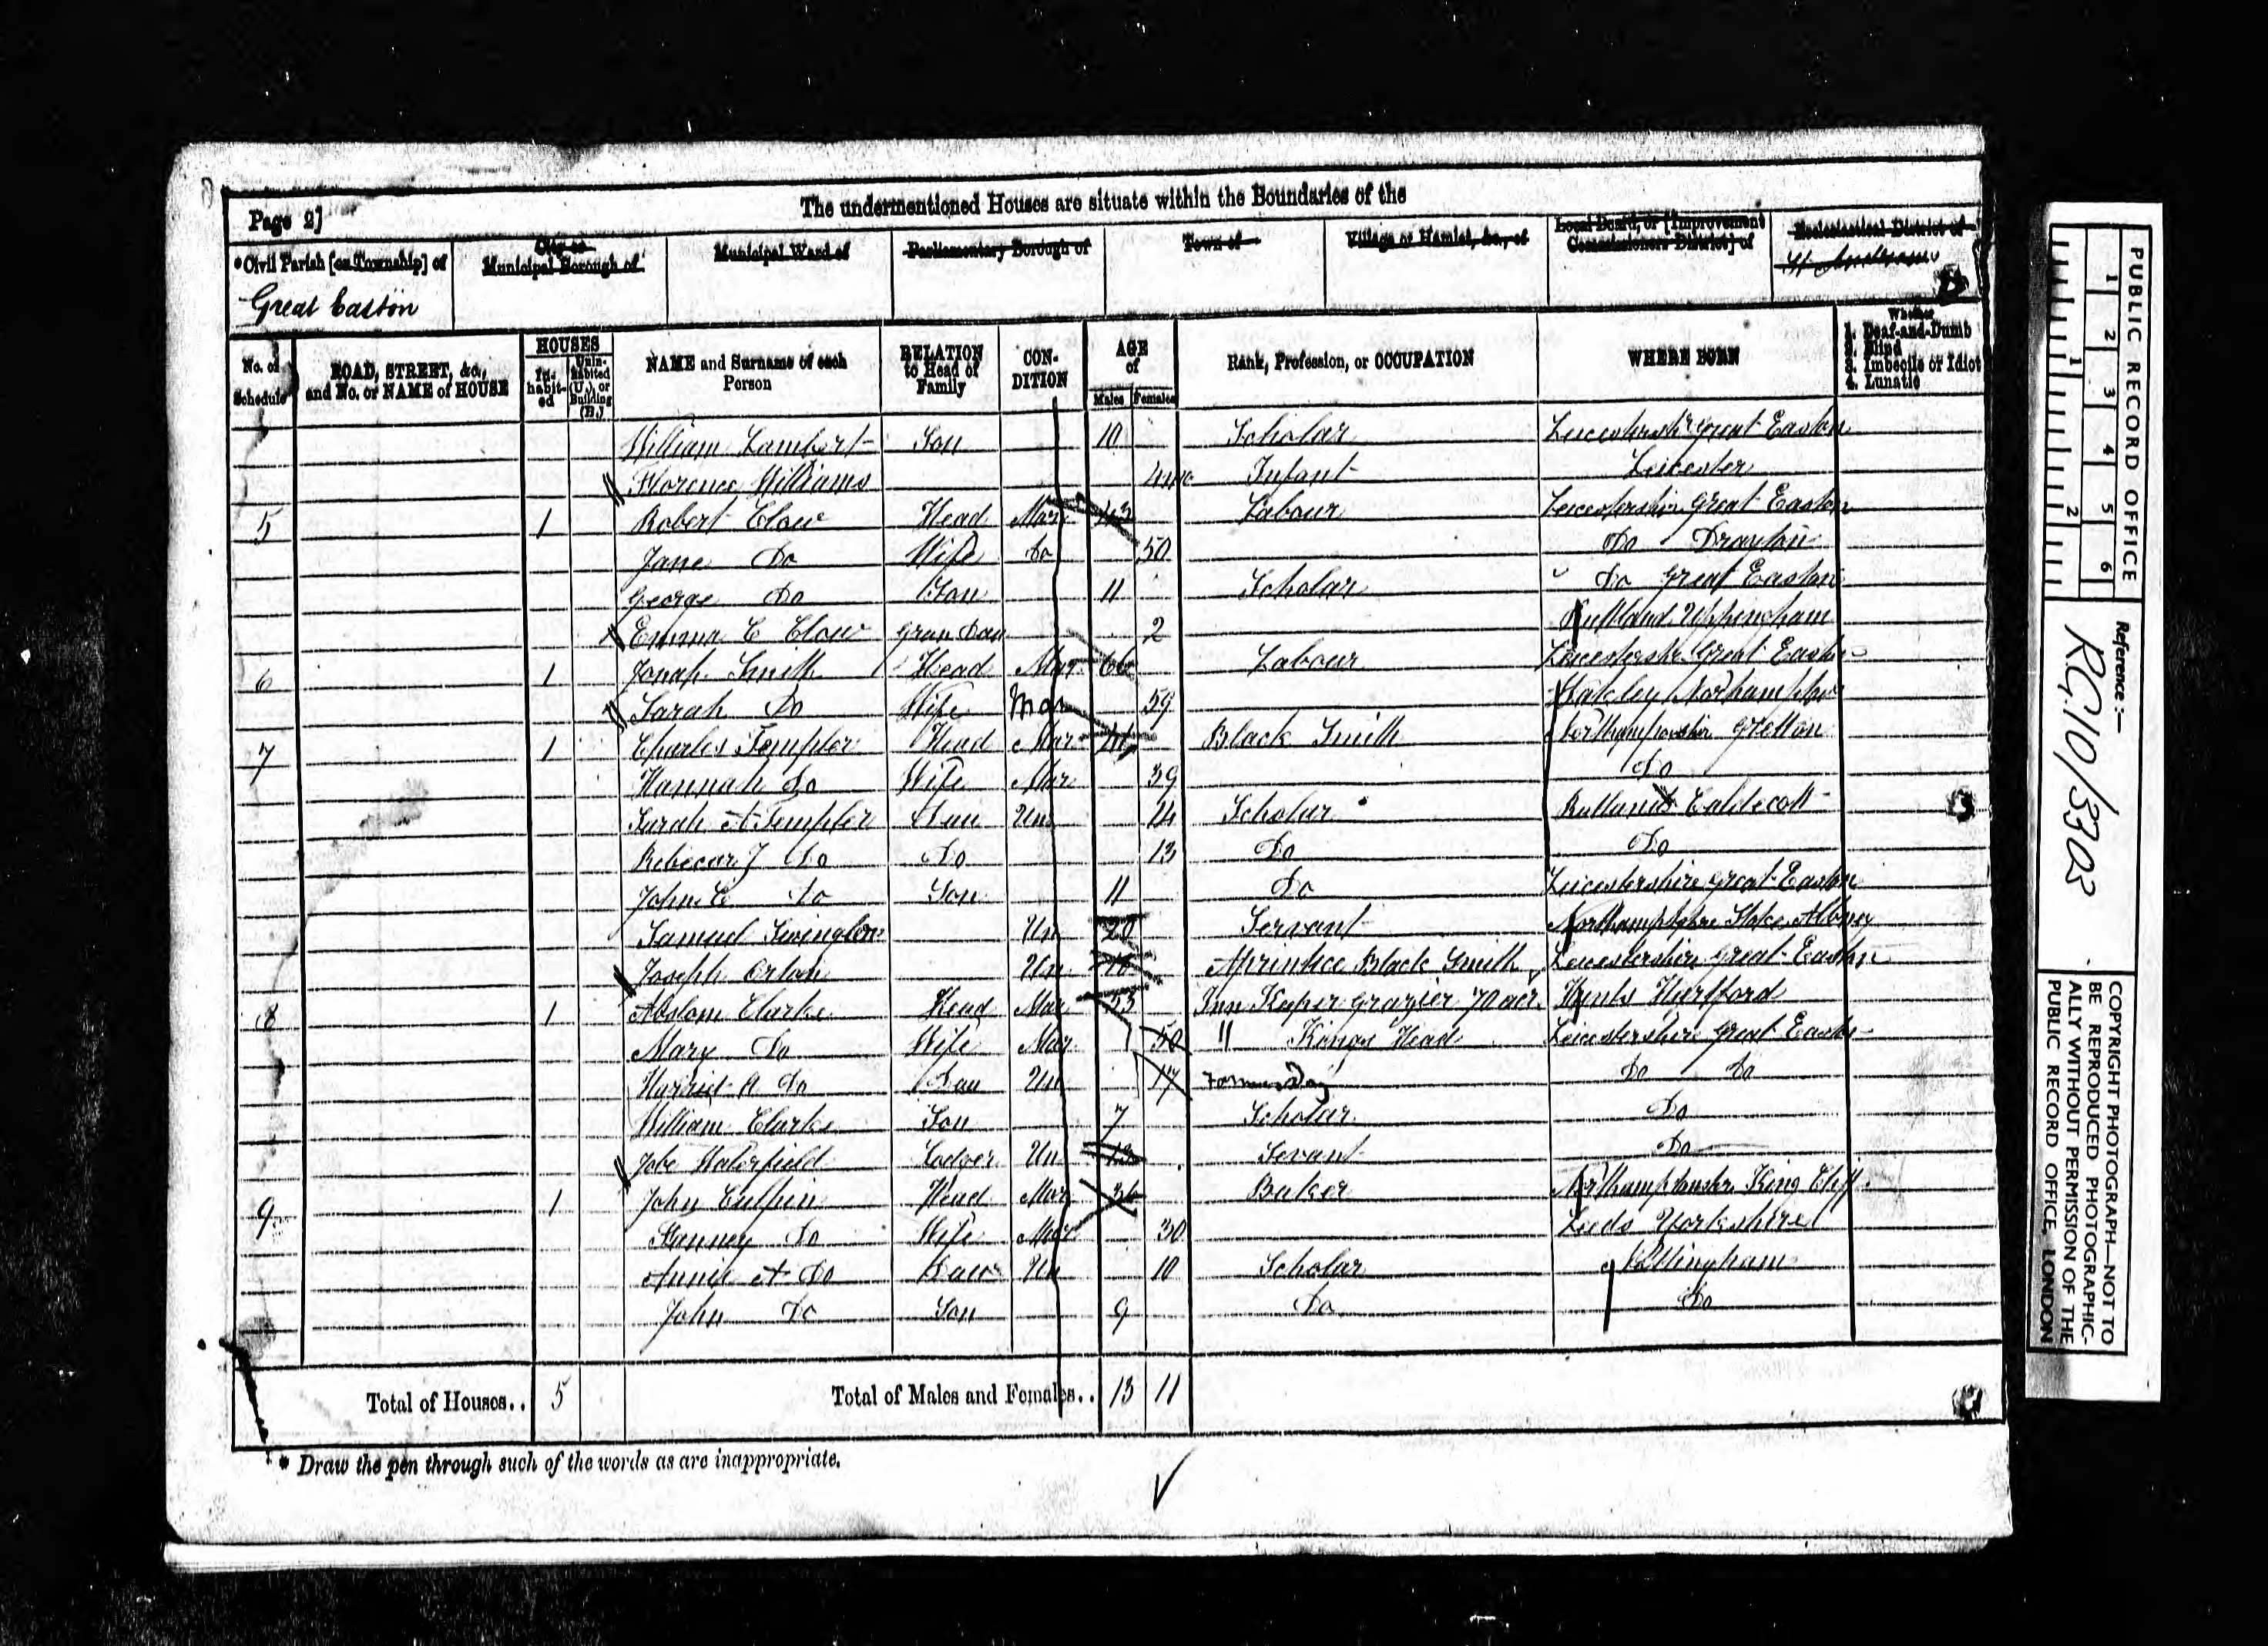 The undermentioned Houses are situate within the Boundaries of the
Page 2]
*Civil Parish [or Township] of
Great Easton
City or
Municipal Borough of
Municipal Ward of
Parliamentary Borough of
Town of
Village or Hamlet, &c., of
Local Board, or [Improvement
Commissioners District] of
Ecclesiastical District of
St Andrews
No. of
Schedule
ROAD, STREET, &c.,
and No. or NAME of HOUSE
HOUSES
In-
habit-
ed
Unin-
habited
(U.), or
Building
(B.)
NAME and Surname of each
Person
RELATION
to Head of
Family
CON-
DITION
AGE
of
Males Females
Rank, Profession, or OCCUPATION
WHERE BORN
Whether
1. Deaf-and-Dumb
2. Blind
3. Imbecile or Idiot
4. Lunatic
William Lambert Son 10 Scholar Leicestershir Great Easton
Florence Williams Infant Leicester
5 1 Robert Clow Head Mar 43 Labour Leicestershir Great Easton
Jane Do Wife Do 50 Do Drayton
George Do Son 11 Scholar Do Great Easton
Emma C Clow Gran Dau 2 Rutland Uppingham
6 1 Jonah Smith Head Mar 66 Labour Leicestershr Great Easton
Sarah Do Wife Mar 59
7 1 Charles Templer Head Mar Black Smith Northamptonshir Gretton
Hannah Do Wife Mar 39 Do
Sarah A Templer Dau Un 14 Scholar Rutland Caldecott
Rebecar J Do Do 13 Do Do
John C Do Son 11 Do Leicestershire Great Easton
Samuel Un 20 Servant Northamptshire Stoke Albney
Joseph Un Aprintice Black Smith Leicestershire Great Easton
8 1 Abslom Clarke Head Mar 53 Inn Keeper Grazier 70 acr. Hunts Hartford
Mary Do Wife Mar 50 " Kings Head Leicestershire Great Easton
Harriet A Do Dau Un 17 Farmers Da Do Do
William Clarke Son 7 Scholar Do
Jobe Waterfield Lodger Un 13 Servant Do
9 1 John Culpin Head Mar 36 Baker Northamptonshr King Cliff
Do Wife Mar 30 Leeds Yorkeshire
Annie A Do Daur Un 10 Scholar
John Do Son 9 Do Do
Total of Houses.. 5 Total of Males and Females.. 13 11
* Draw the pen through such of the words as are inappropriate.
PUBLIC RECORD OFFICE
1 2 3 4 5 6
1 2
Reference:-
RG10/3303
COPYRIGHT PHOTOGRAPH—NOT TO
BE REPRODUCED PHOTOGRAPHIC-
ALLY WITHOUT PERMISSION OF THE
PUBLIC RECORD OFFICE, LONDON